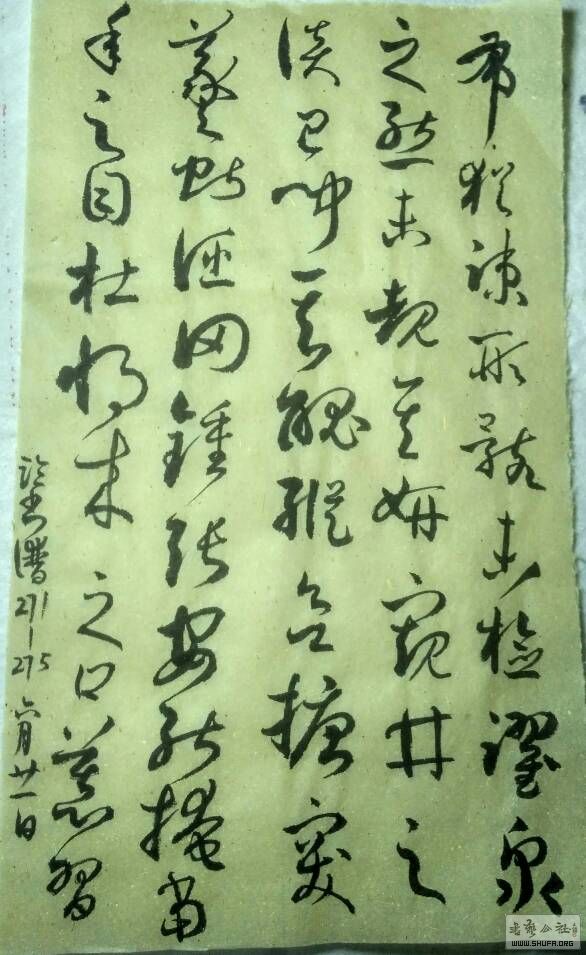 布猶疎形骸未檢濯泉
之態未覩其妍窺井之
談已聞其醜縱欲搪突
羲獻誣罔鍾張安能掩當
年之目杜將来之口慕習
臨書譜271-275 六月廿一日
書藝公社
WWW.SHUFA.ORG